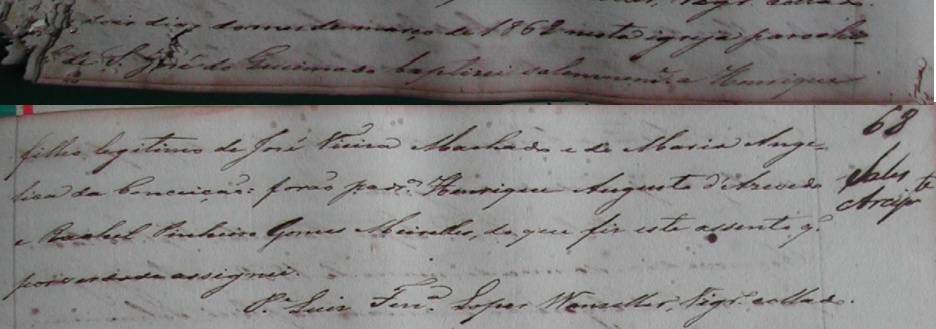 dias do mes de março de 1868 nesta igreja parochi=
de S. José de Queimado baptisei solemnem.e a Henrique
68
filho legitimo de José Vieira Machado e de Maria Ange=
lica da Conceição: forão padr.os Henrique Augusto d'Azevedo
e Rachel Pinheiro Gomes Meirelles, do que fiz este assento q.
por verdade assignei.
P.e Luiz
Vigr.o collado.